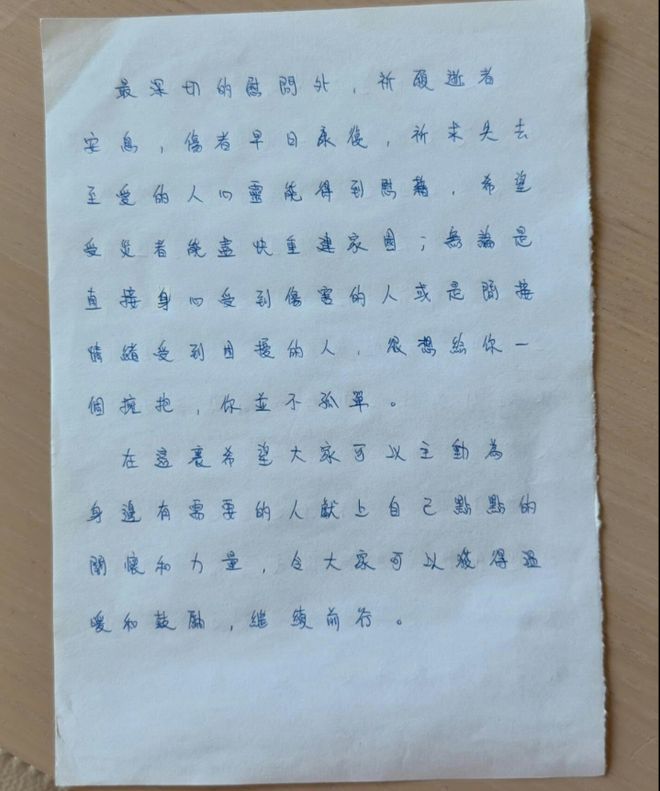 最深切的慰問外，祈願逝者
安息，傷者早日康復，祈求失去
至愛的人心靈能得到慰藉，希望
受災者能盡快重建家園；無論是
直接身心受到傷害的人或是間接
情緒受到困擾的人，很想給你一
個擁抱，你並不孤單。
在這裏希望大家可以主動為
身邊有需要的人獻上自己點點的
關懷和力量，令大家可以獲得溫
暖和鼓勵，繼續前行。